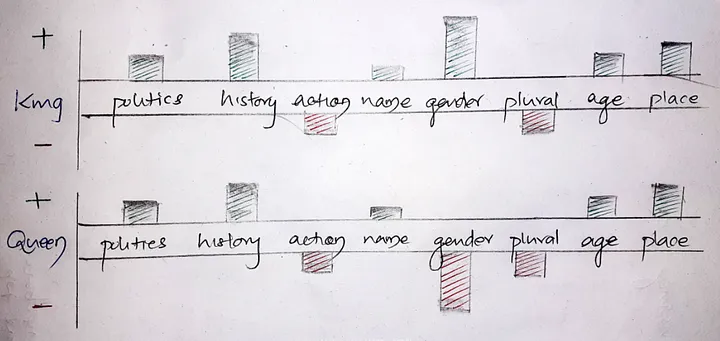 +
King
politics history action name gender plural age place
−
+
Queen
politics history action name gender plural age place
−